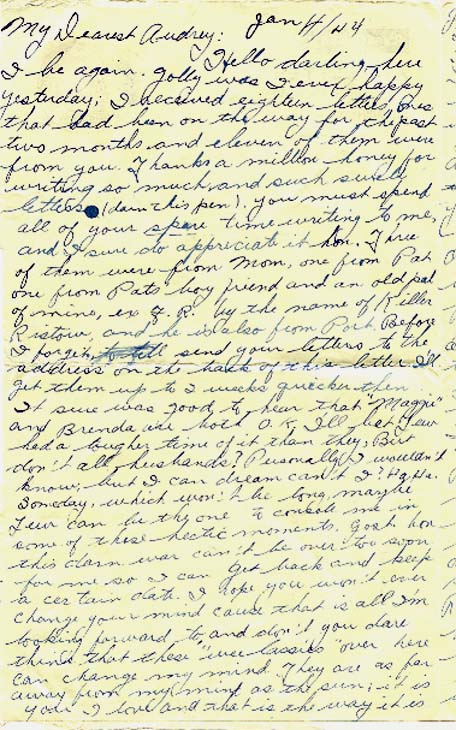 My Dearest Audrey: Jan 4/44
Hello darling, here
I be again. Golly was I ever happy
yesterday; I received eighteen letters, ones
that had been on the way for the past
two months and eleven of them were
from you. Thanks a million honey for
writing so much and such swell
letters (darn this pen). You must spend
all of your spare time writing to me,
and I sure do appreciate it hon. Three
of them were from Mom, one from Pat
one from Pats boy friend and an old pal
of mine, ex F. R. by the name of Killer
Ristow, and he is also from Port. Before
I forget, to tell send your letters to the
address on the back of this letter I'll
get them up to 2 weeks quicker then.
It sure was good to hear that "Maggie"
and Brenda are both O.K. I'll bet Lew
had a tougher time of it than they, But
don't all husbands? Personally I wouldn't
know, but I can dream can't I? Ha Ha.
Someday, which won't be long, maybe
Lew can be thy one to console me in
some of these hectic moments. Gosh hon
this darn war can't be over too soon
for me so I can get back and keep
a certain date. I hope you won't ever
change your mind cause that is all I'm
looking forward to, and don't you dare
think that these "wee lassies" over here
can change my mind. They are as far
away from my mind as the sun; it is
you I love and that is the way it is